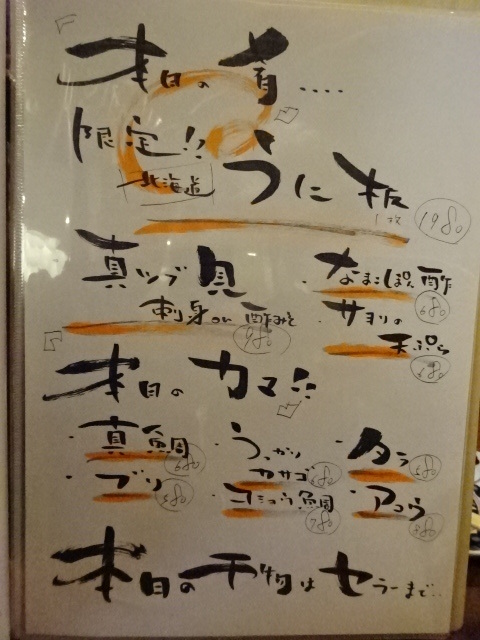 「本日の肴‥‥」
限定!!
北海道 うに板
1枚 1980
真ツブ貝
刺身or酢みそ
980
・なまこぽん酢
680
・サヨリの
天ぷら
「本日のカマ!!」
・真鯛
680
・うっかり
カサゴ
・タラ
・ブリ
580
・コショウ鯛
780
・アコウ
本日の干物はセラーまで‥